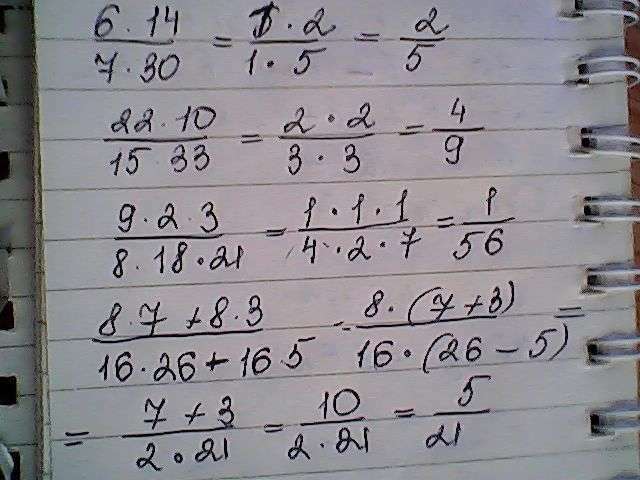 6·14/7·30 = 1·2/1·5 = 2/5
22·10/15 33 = 2·2/3·3 = 4/9
9·2 3/8·18·21 = 1·1·1/4·2·7 = 1/56
8·7+8·3/16·26+16·5 - 8·(7+3)/16·(26-5) =
= 7+3/2·21 = 10/2·21 = 5/21